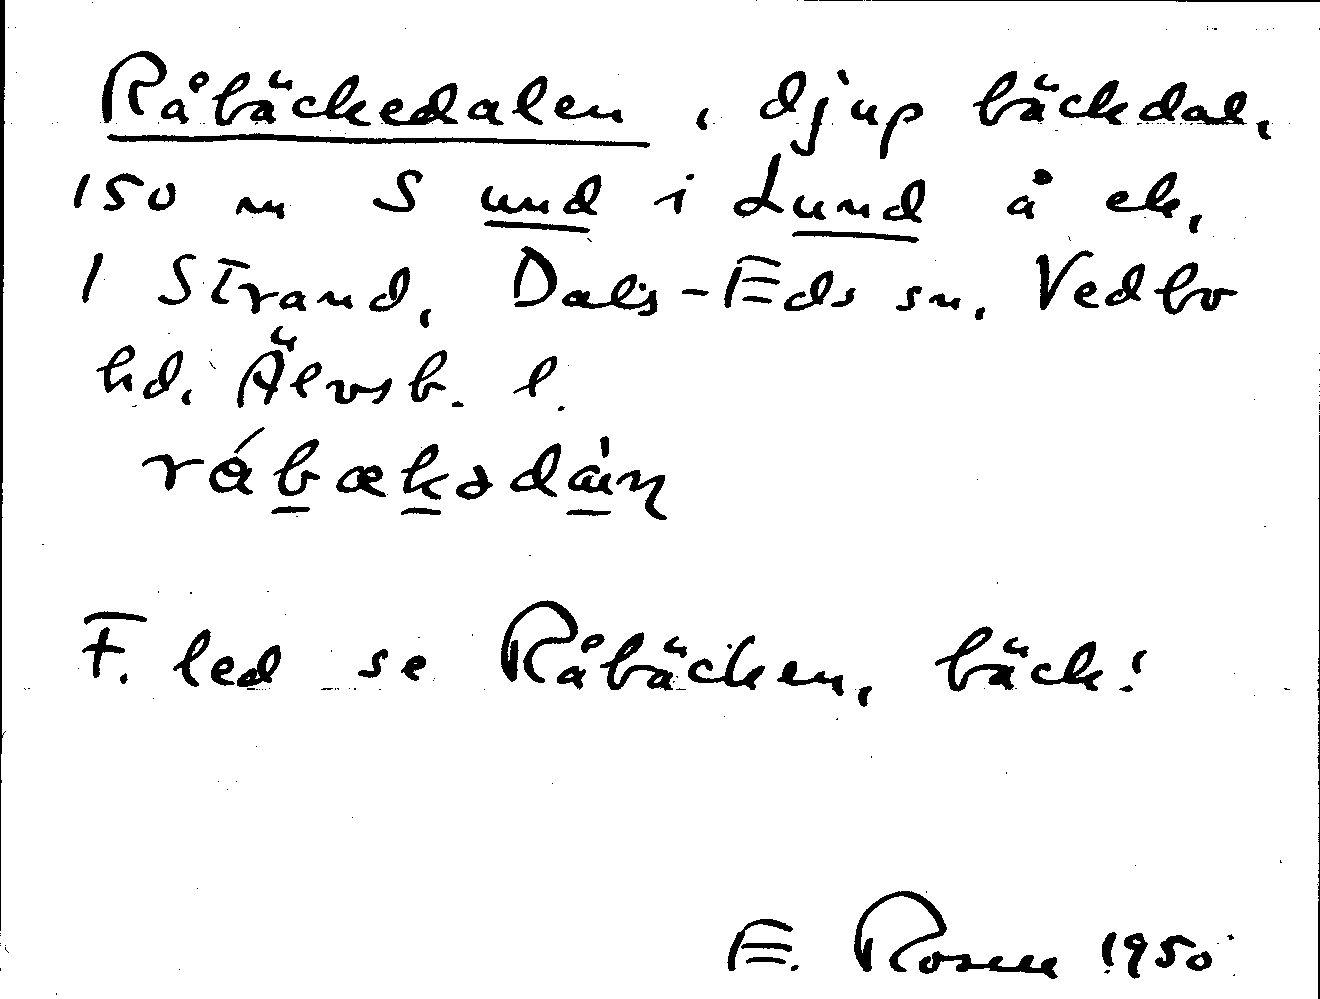 Råbäckedalen, djup bäckdal,
150 m S und i Lund å ek,
1 Strand, Dals-Eds sn, Vedbo
hd, Älvsb. l.
rábækədàɩ̯n
F. led se Råbäcken, bäck!
E. Rosell 1950